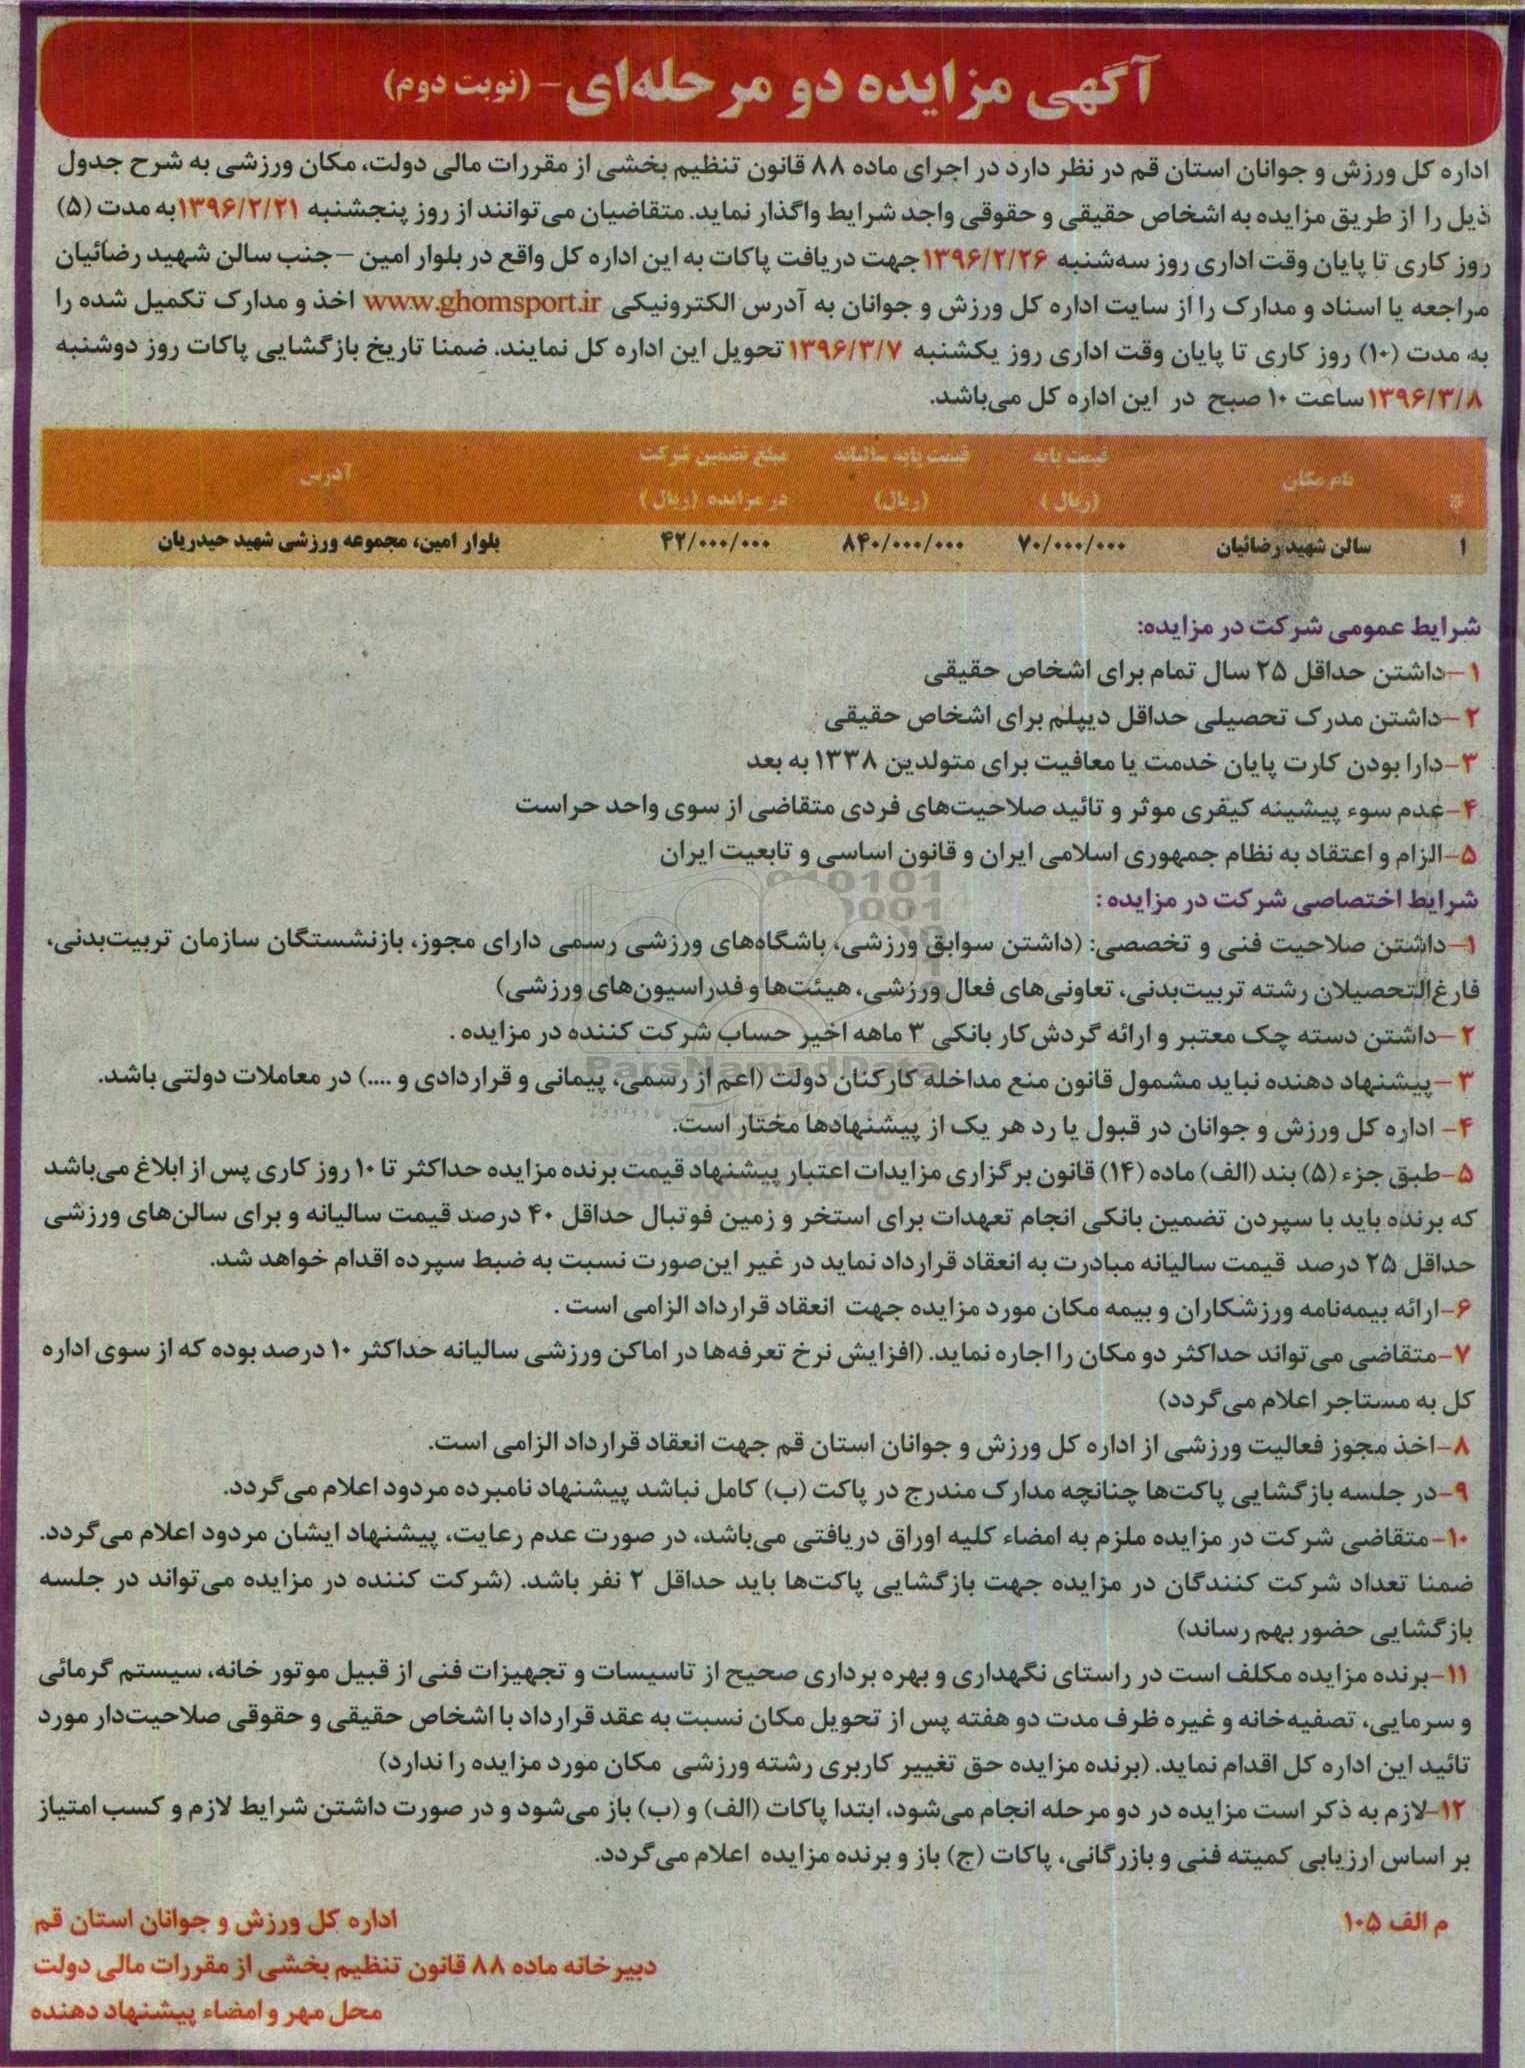 آگهی مزایده دو مرحله‌ای - (نوبت دوم)
اداره کل ورزش و جوانان استان قم در نظر دارد در اجرای ماده ۸۸ قانون تنظیم بخشی از مقررات مالی دولت، مکان ورزشی به شرح جدول
ذیل را از طریق مزایده به اشخاص حقیقی و حقوقی واجد شرایط واگذار نماید. متقاضیان می‌توانند از روز پنجشنبه ۱۳۹۶/۲/۲۱ به مدت (۵)
روز کاری تا پایان وقت اداری روز سه‌شنبه ۱۳۹۶/۲/۲۶ جهت دریافت پاکات به این اداره کل واقع در بلوار امین - جنب سالن شهید رضائیان
مراجعه یا اسناد و مدارک را از سایت اداره کل ورزش و جوانان به آدرس الکترونیکی www.ghomsport.ir اخذ و مدارک تکمیل شده را
به مدت (۱۰) روز کاری تا پایان وقت اداری روز یکشنبه ۱۳۹۶/۳/۷ تحویل این اداره کل نمایند. ضمنا تاریخ بازگشایی پاکات روز دوشنبه
۱۳۹۶/۳/۸ ساعت ۱۰ صبح در این اداره کل می‌باشد.
نام مکان قیمت پایه (ریال) قیمت پایه سالیانه (ریال) مبلغ تضمین شرکت در مزایده (ریال) آدرس
۱ سالن شهید رضائیان ۷۰/۰۰۰/۰۰۰ ۸۴۰/۰۰۰/۰۰۰ ۴۲/۰۰۰/۰۰۰ بلوار امین، مجموعه ورزشی شهید حیدریان
شرایط عمومی شرکت در مزایده:
۱-داشتن حداقل ۲۵ سال تمام برای اشخاص حقیقی
۲-داشتن مدرک تحصیلی حداقل دیپلم برای اشخاص حقیقی
۳-دارا بودن کارت پایان خدمت یا معافیت برای متولدین ۱۳۳۸ به بعد
۴-عدم سوء پیشینه کیفری موثر و تائید صلاحیت‌های فردی متقاضی از سوی واحد حراست
۵-الزام و اعتقاد به نظام جمهوری اسلامی ایران و قانون اساسی و تابعیت ایران
شرایط اختصاصی شرکت در مزایده:
۱-داشتن صلاحیت فنی و تخصصی: (داشتن سوابق ورزشی، باشگاه‌های ورزشی رسمی دارای مجوز، بازنشستگان سازمان تربیت‌بدنی،
فارغ‌التحصیلان رشته تربیت‌بدنی، تعاونی‌های فعال ورزشی، هیئت‌ها و فدراسیون‌های ورزشی)
۲-داشتن دسته چک معتبر و ارائه گردش‌کار بانکی ۳ ماهه اخیر حساب شرکت کننده در مزایده .
۳-پیشنهاد دهنده نباید مشمول قانون منع مداخله کارکنان دولت (اعم از رسمی، پیمانی و قراردادی و ....) در معاملات دولتی باشد.
۴- اداره کل ورزش و جوانان در قبول یا رد هر یک از پیشنهادها مختار است.
۵-طبق جزء (۵) بند (الف) ماده (۱۴) قانون برگزاری مزایدات اعتبار پیشنهاد قیمت برنده مزایده حداکثر تا ۱۰ روز کاری پس از ابلاغ می‌باشد
که برنده باید با سپردن تضمین بانکی انجام تعهدات برای استخر و زمین فوتبال حداقل ۴۰ درصد قیمت سالیانه و برای سالن‌های ورزشی
حداقل ۲۵ درصد قیمت سالیانه مبادرت به انعقاد قرارداد نماید در غیر این‌صورت نسبت به ضبط سپرده اقدام خواهد شد.
۶-ارائه بیمه‌نامه ورزشکاران و بیمه مکان مورد مزایده جهت انعقاد قرارداد الزامی است .
۷-متقاضی می‌تواند حداکثر دو مکان را اجاره نماید. (افزایش نرخ تعرفه‌ها در اماکن ورزشی سالیانه حداکثر ۱۰ درصد بوده که از سوی اداره
کل به مستاجر اعلام می‌گردد)
۸-اخذ مجوز فعالیت ورزشی از اداره کل ورزش و جوانان استان قم جهت انعقاد قرارداد الزامی است.
۹-در جلسه بازگشایی پاکت‌ها چنانچه مدارک مندرج در پاکت (ب) کامل نباشد پیشنهاد نامبرده مردود اعلام می‌گردد.
۱۰-متقاضی شرکت در مزایده ملزم به امضاء کلیه اوراق دریافتی می‌باشد، در صورت عدم رعایت، پیشنهاد ایشان مردود اعلام می‌گردد.
ضمنا تعداد شرکت کنندگان در مزایده جهت بازگشایی پاکت‌ها باید حداقل ۲ نفر باشد. (شرکت کننده در مزایده می‌تواند در جلسه
بازگشایی حضور بهم رساند)
۱۱-برنده مزایده مکلف است در راستای نگهداری و بهره برداری صحیح از تاسیسات و تجهیزات فنی از قبیل موتور خانه، سیستم گرمائی
و سرمایی، تصفیه‌خانه و غیره ظرف مدت دو هفته پس از تحویل مکان نسبت به عقد قرارداد با اشخاص حقیقی و حقوقی صلاحیت‌دار مورد
تائید این اداره کل اقدام نماید. (برنده مزایده حق تغییر کاربری رشته ورزشی مکان مورد مزایده را ندارد)
۱۲-لازم به ذکر است مزایده در دو مرحله انجام می‌شود، ابتدا پاکات (الف) و (ب) باز می‌شود و در صورت داشتن شرایط لازم و کسب امتیاز
بر اساس ارزیابی کمیته فنی و بازرگانی، پاکات (ج) باز و برنده مزایده اعلام می‌گردد.
م الف ۱۰۵
اداره کل ورزش و جوانان استان قم
دبیرخانه ماده ۸۸ قانون تنظیم بخشی از مقررات مالی دولت
محل مهر و امضاء پیشنهاد دهنده
ParsNamadData